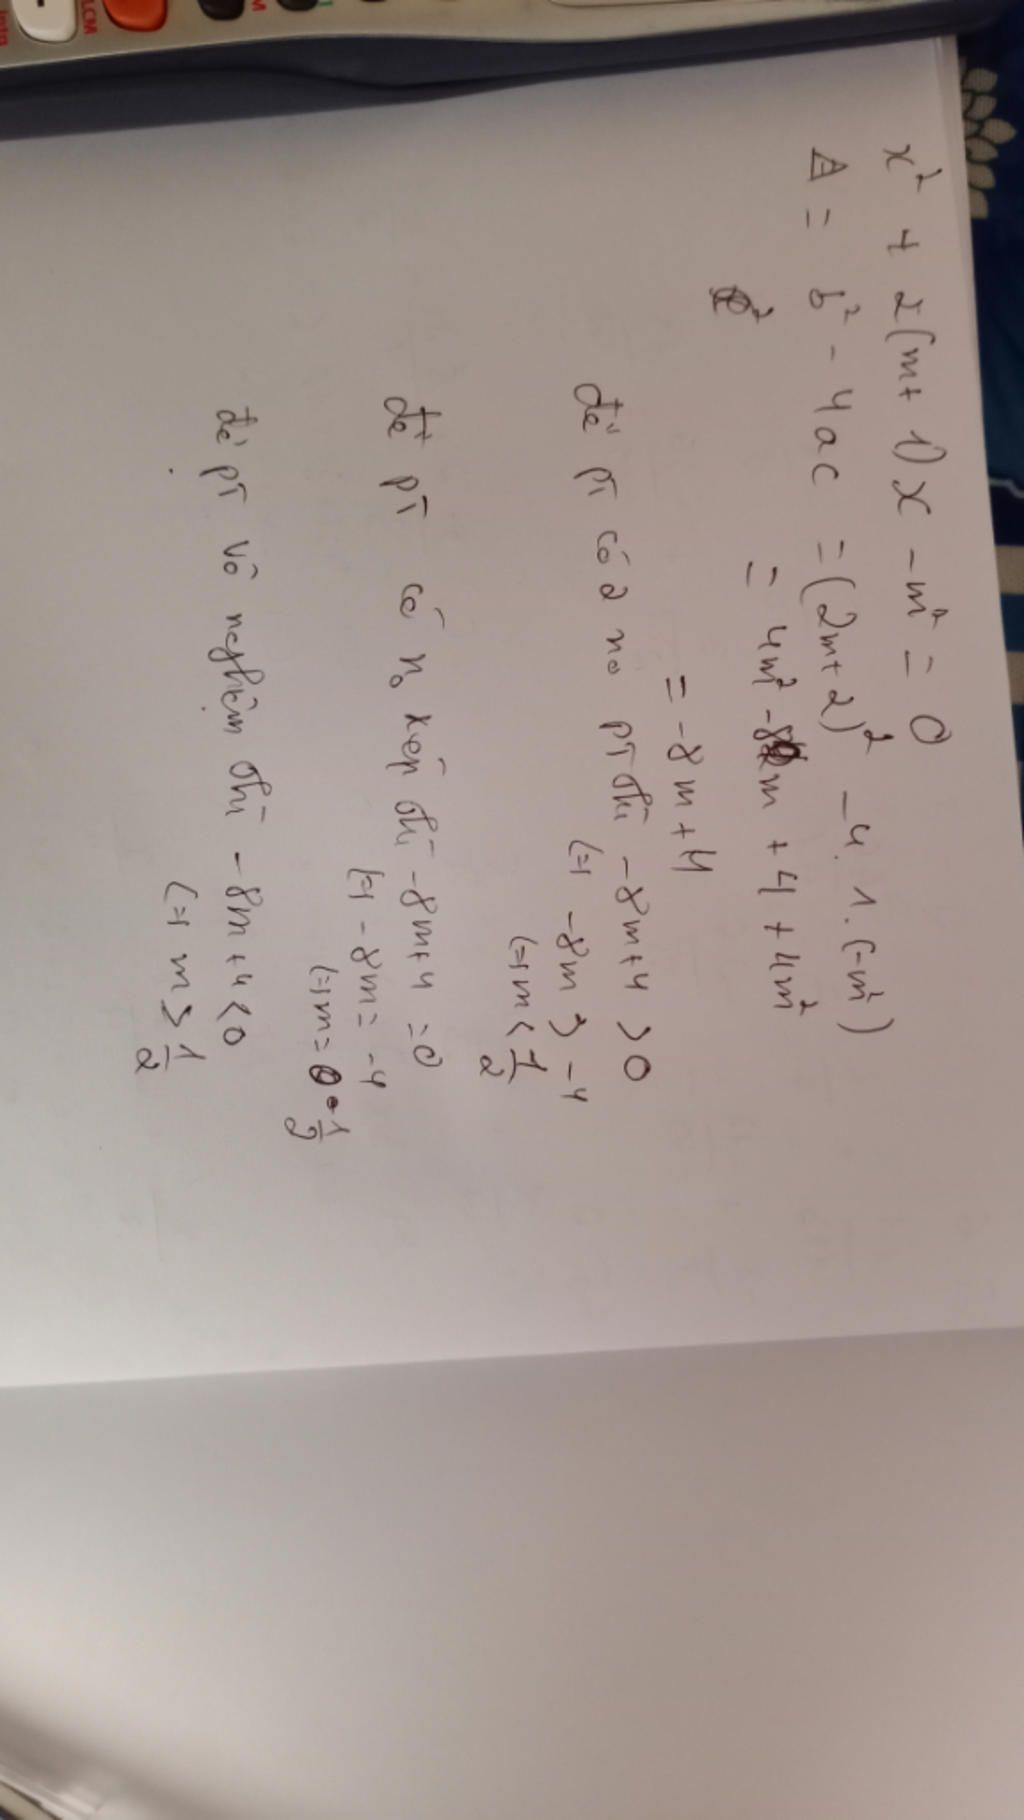 x² + 2(m+1)x - m² = 0
Δ = b² - 4ac = (2m+2)² - 4.1.(-m²)
= 4m² - 8m + 4 + 4m²
= -8m+4
để pT có 2 no pT thì -8m+4 > 0
(=) -8m > -4
(=) m < 1/2
để pT có no kép thì -8m+4 = 0
(=) -8m = -4
(=) m = 1/2
để pT vô nghiệm thì -8m+4 < 0
(=) m > 1/2